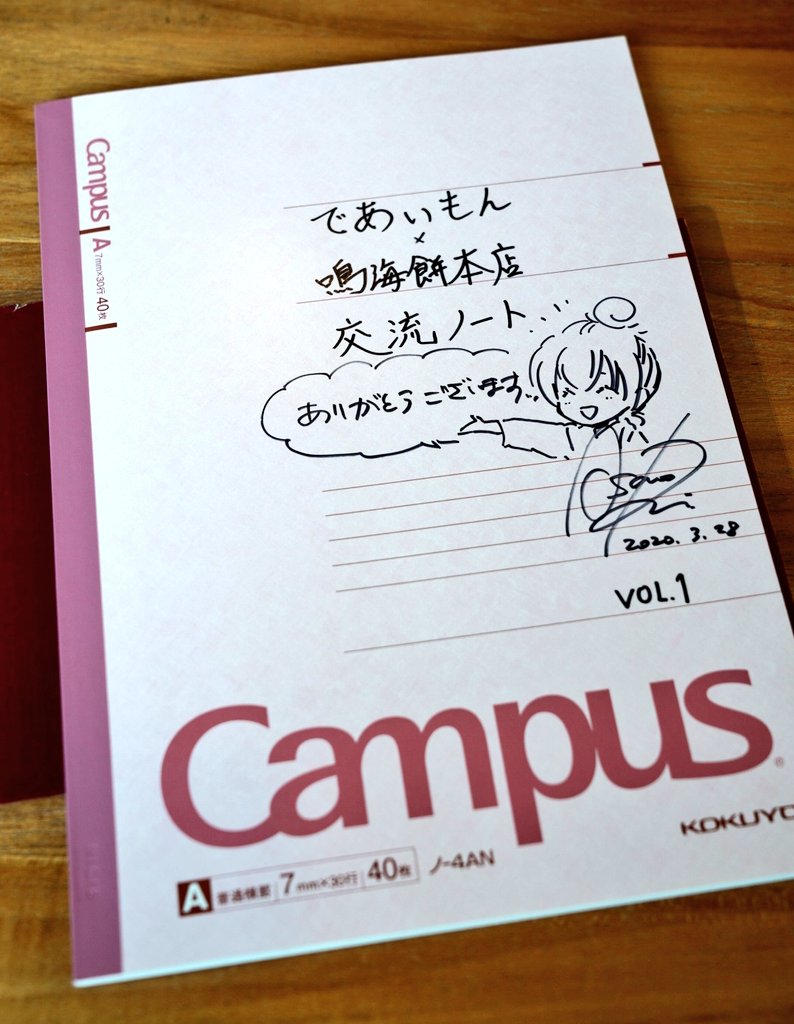 Campus
A 7mm×30行 40枚
であいもん
×
鳴海餅本店
交流ノート...
ありがとうございます。
2020.3.28
VOL.1
Campus®
KOKUYO
A 普通横罫 7mm×30行 40枚 ノ-4AN